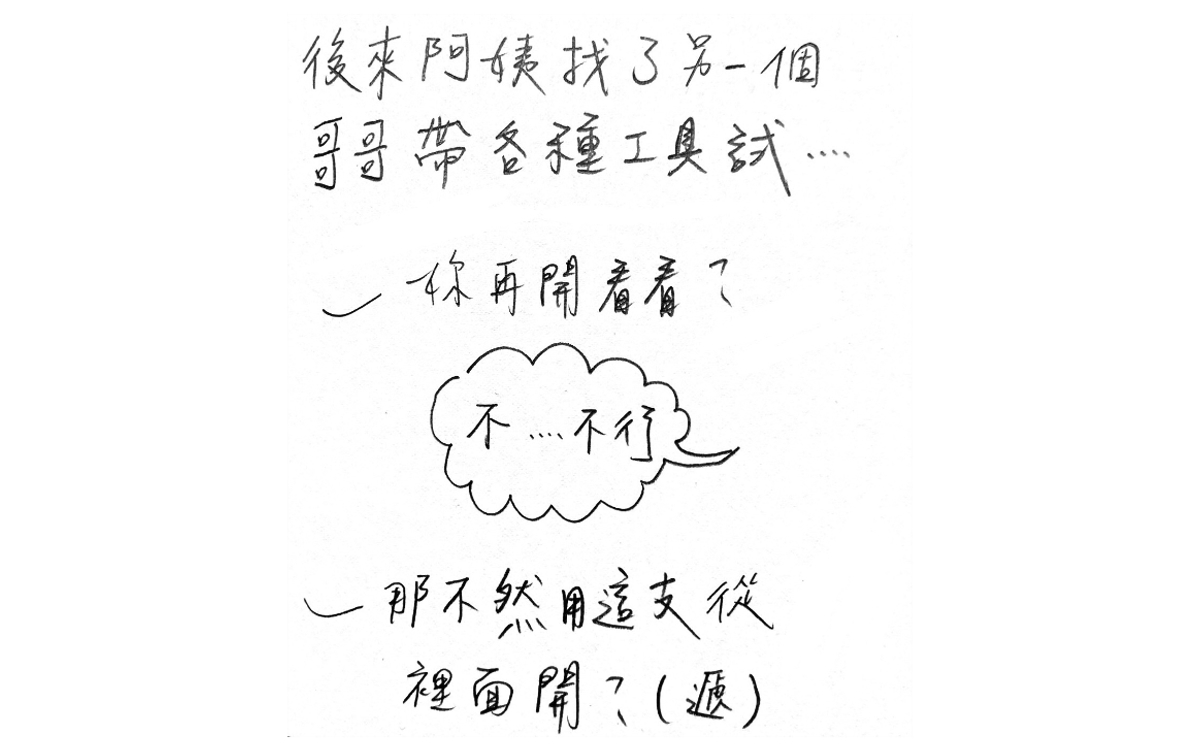 後來阿姨找了另一個
哥哥帶各種工具試....
妳再開看看?
不....不行
那不然用這支從
裡面開?(遞)